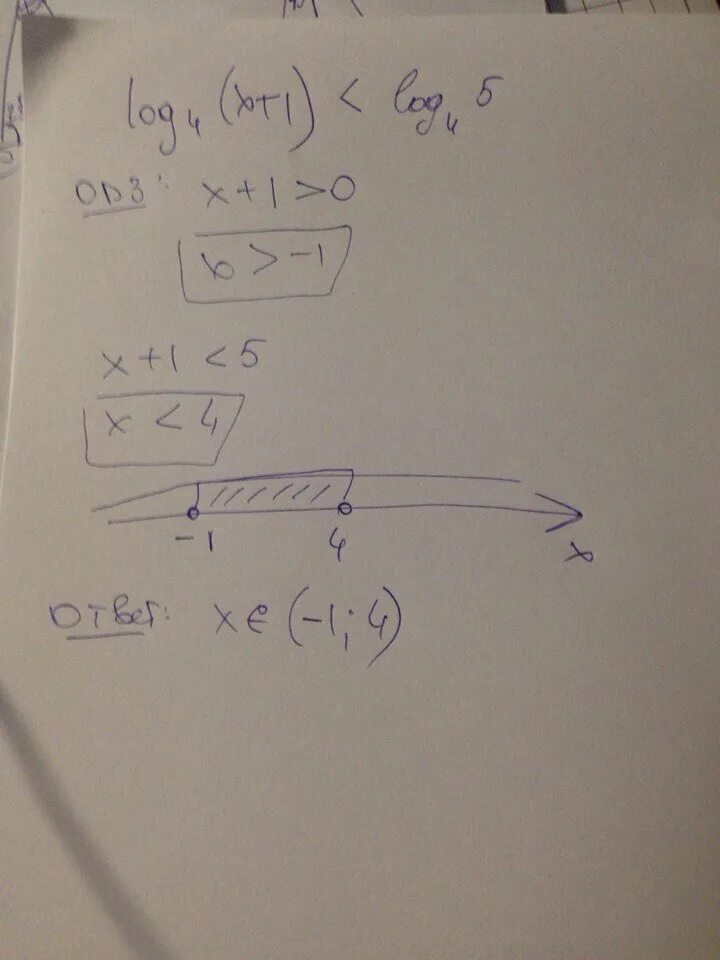 log₄(x+1) < log₄ 5
ОДЗ: x+1>0
x > -1
x+1 < 5
x < 4
-1 4 x
Ответ: x∈(-1; 4)